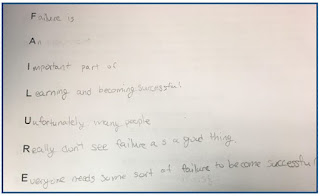 Failure is
An
Important part of
Learning and becoming successful
Unfortunately many people
Really don't see failure as a good thing.
Everyone needs some sort of failure to become successful